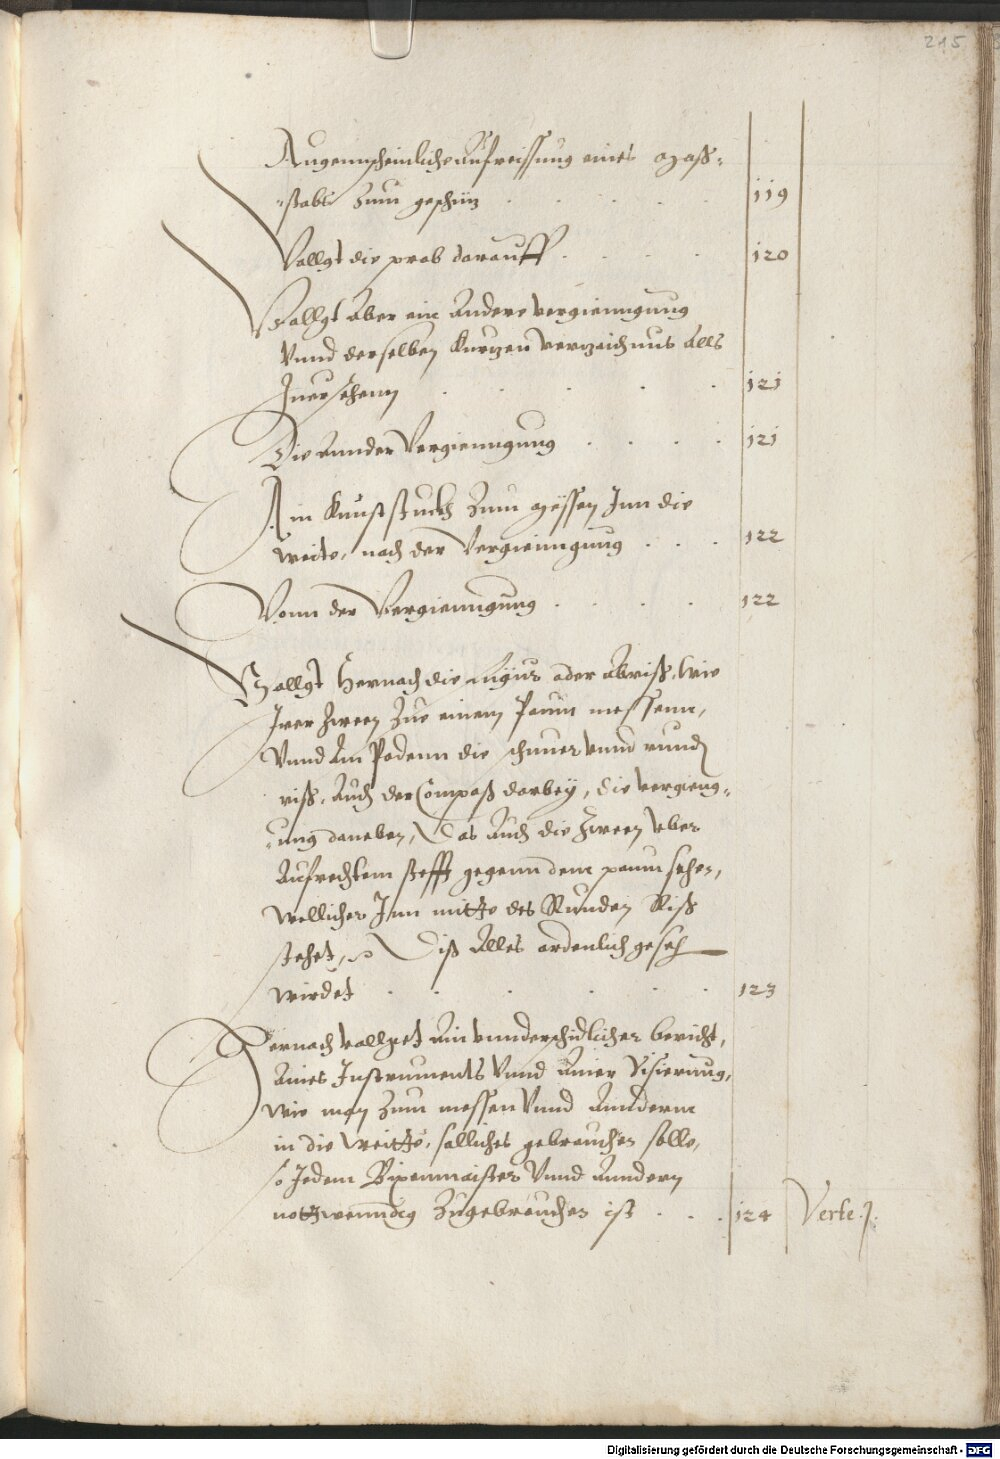 215
Augennscheinliche aufreissung eines Maß=
=stabs zum geschüz . . . . . 119
Vollgt die prob darauff . . . . 120
Vollgt Aber ein Andere vergienngung
Vnnd derselben Kurtzen vertzaichnus Alls
Zuersehenn . . . . . 121
Die annder Vergienngung . . . . 121
Ain Kunststuckh Zum Messen Inn die
weite, nach der Vergienngung . . . 122
Vonn der Vergienngung . . . . 122
Vollgt Hernach die oder Abriß, wie
Irer Zween Zue einem Paum messenn,
Vnnd Am Podenn die schnuer vnnd rund
riß, Auch der Compaß darbey, die vergieng=
=ung daneben, Das Auch die Zween vber
Aufrechtem stefft gegenn dem paum sehen,
wellicher Inn mitte des Runden Riß
stehet, Diß Alles ordenlich geseh
wirdet . . . . . 123
Hernach vollget Ain vnnderschidlicher bericht,
Aines Instruments Vnnd Ainer Visierung,
wie man Zum messen Vnnd Anndernn
in die weitte, solliches gebrauchen solle,
so Jedem Pixenmaister Vnnd Anndern
nottwenndig Zugebrauchen ist . . . 124
Verte
Digitalisierung gefördert durch die Deutsche Forschungsgemeinschaft - DFG